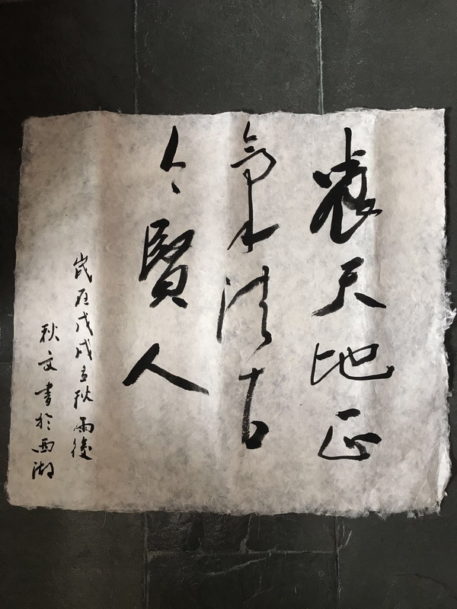 養天地正
氣法古
今賢人
歲在戊戌立秋雨後
秋文書於西湖